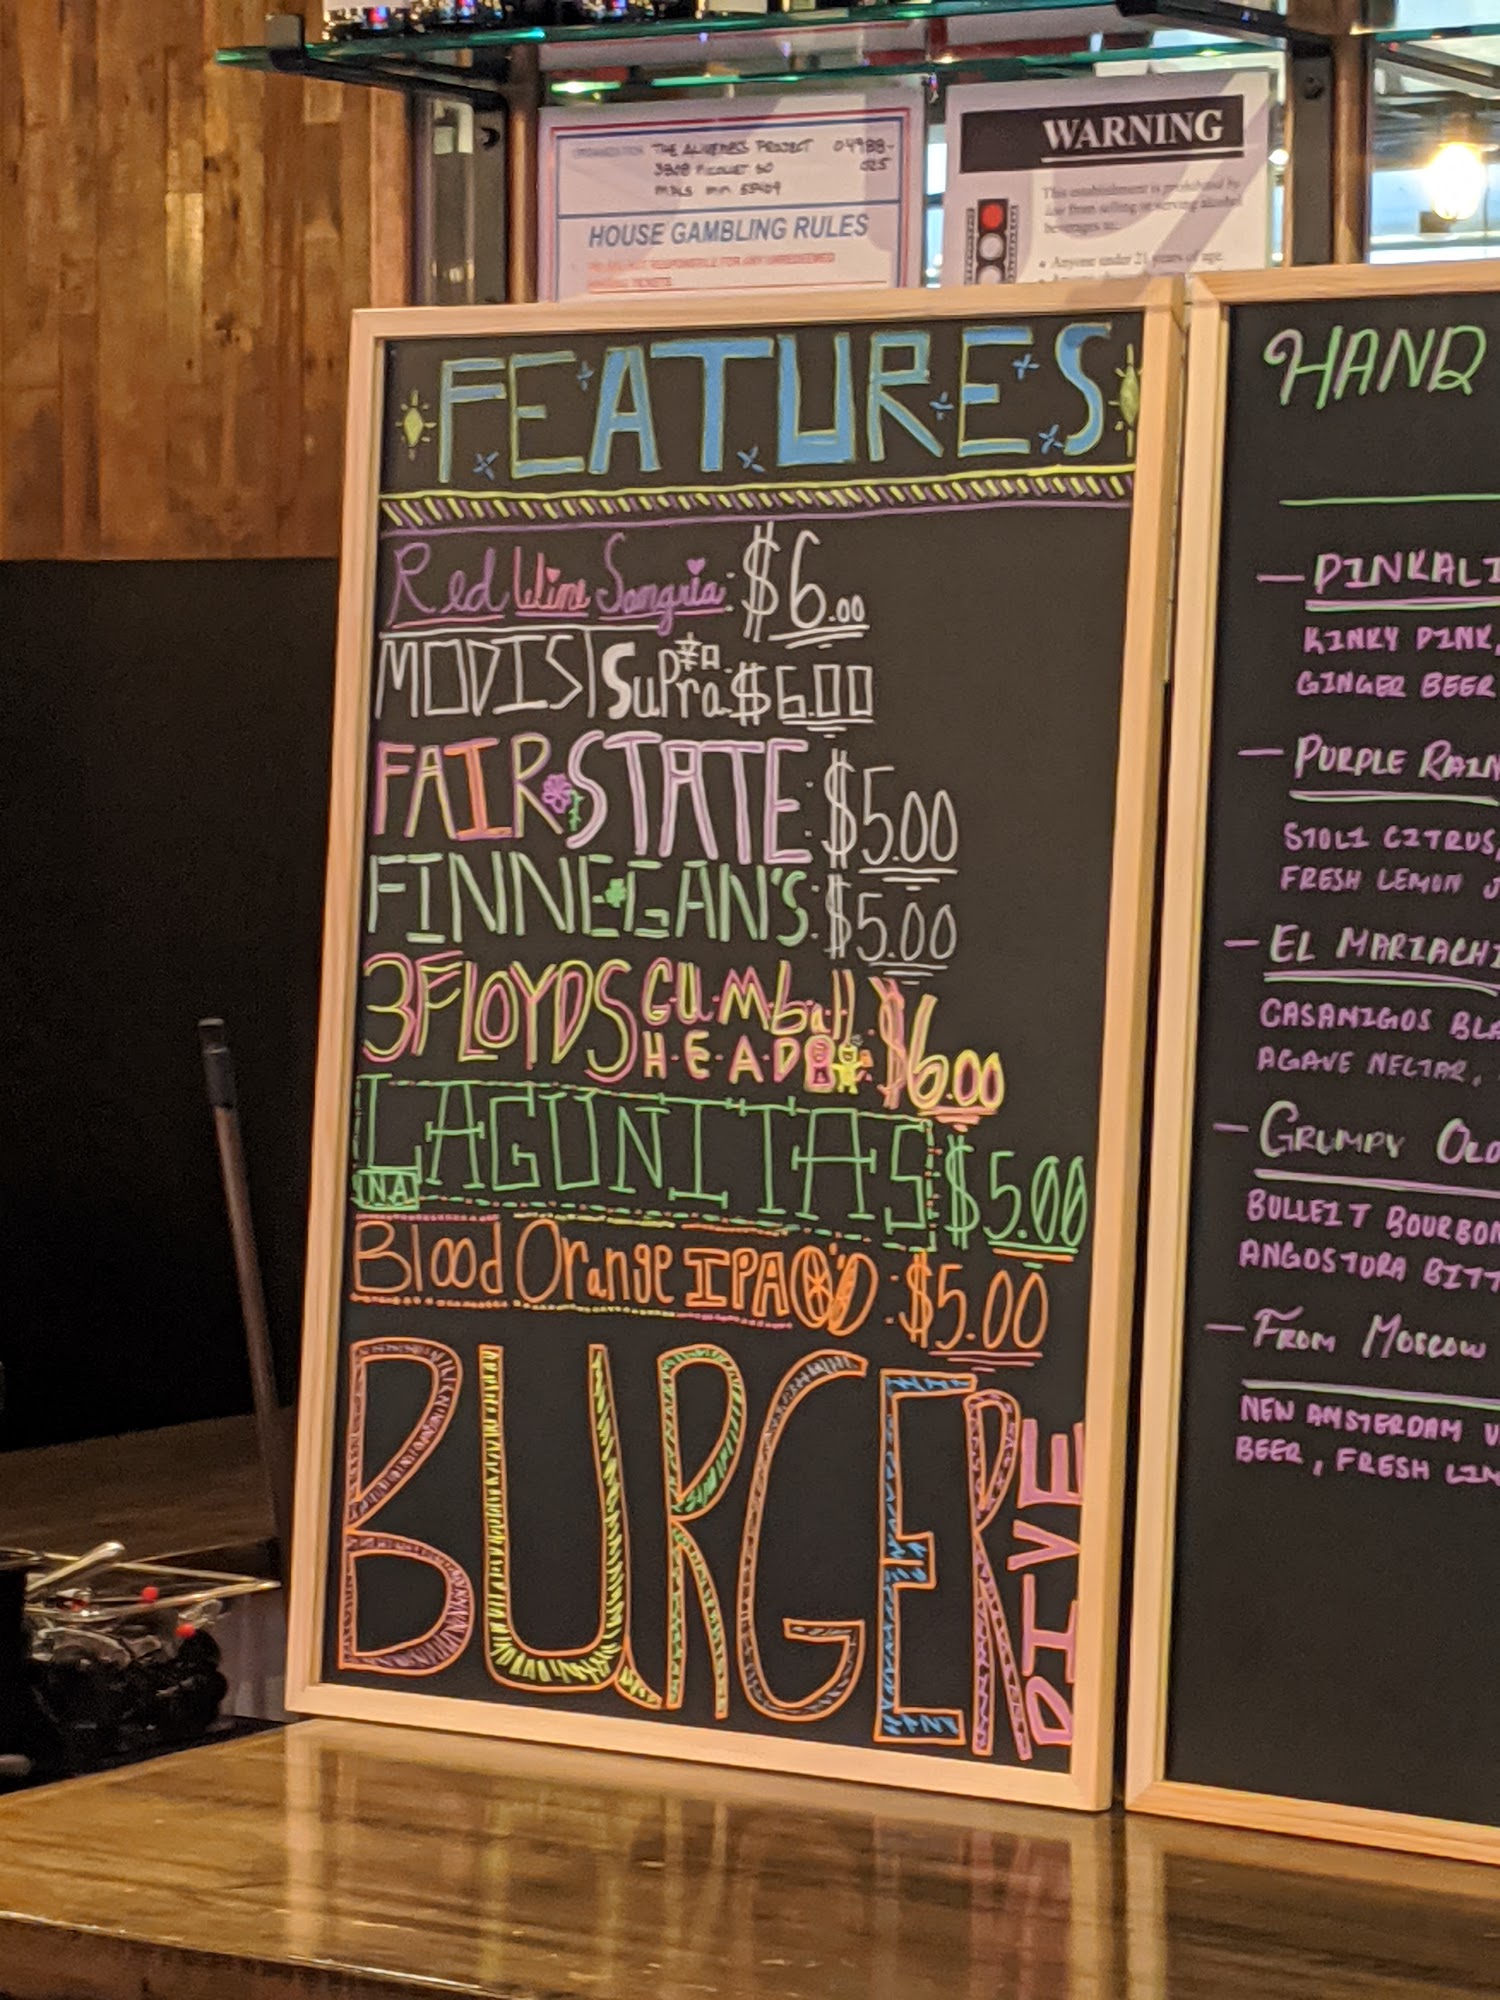 THE ALIVENESS PROJECT 04988-
3808 NICOLLET SO 025
MPLS MN 55409
HOUSE GAMBLING RULES
WARNING
This establishment is prohibited by
law from selling or serving alcohol
beverages to:
• Anyone under 21 years of age.
FEATURES
Red Wine Sangria: $6.00
MODIST Supra: $6.00
FAIR STATE: $5.00
FINNEGAN'S: $5.00
3 FLOYDS GUMball HEAD: $6.00
LAGUNITAS $5.00
NA
Blood Orange IPA: $5.00
BURGER
DIVE
HAND
— PINKALI
KINKY PINK,
GINGER BEER
— PURPLE RAIN
STOLI CITRUS,
FRESH LEMON J
— EL MARIACHI
CASAMIGOS BLA
AGAVE NECTAR,
— GRUMPY OLD
BULLEIT BOURBON
ANGOSTORA BITT
— FROM MOSCOW
NEW AMSTERDAM V
BEER, FRESH LIM